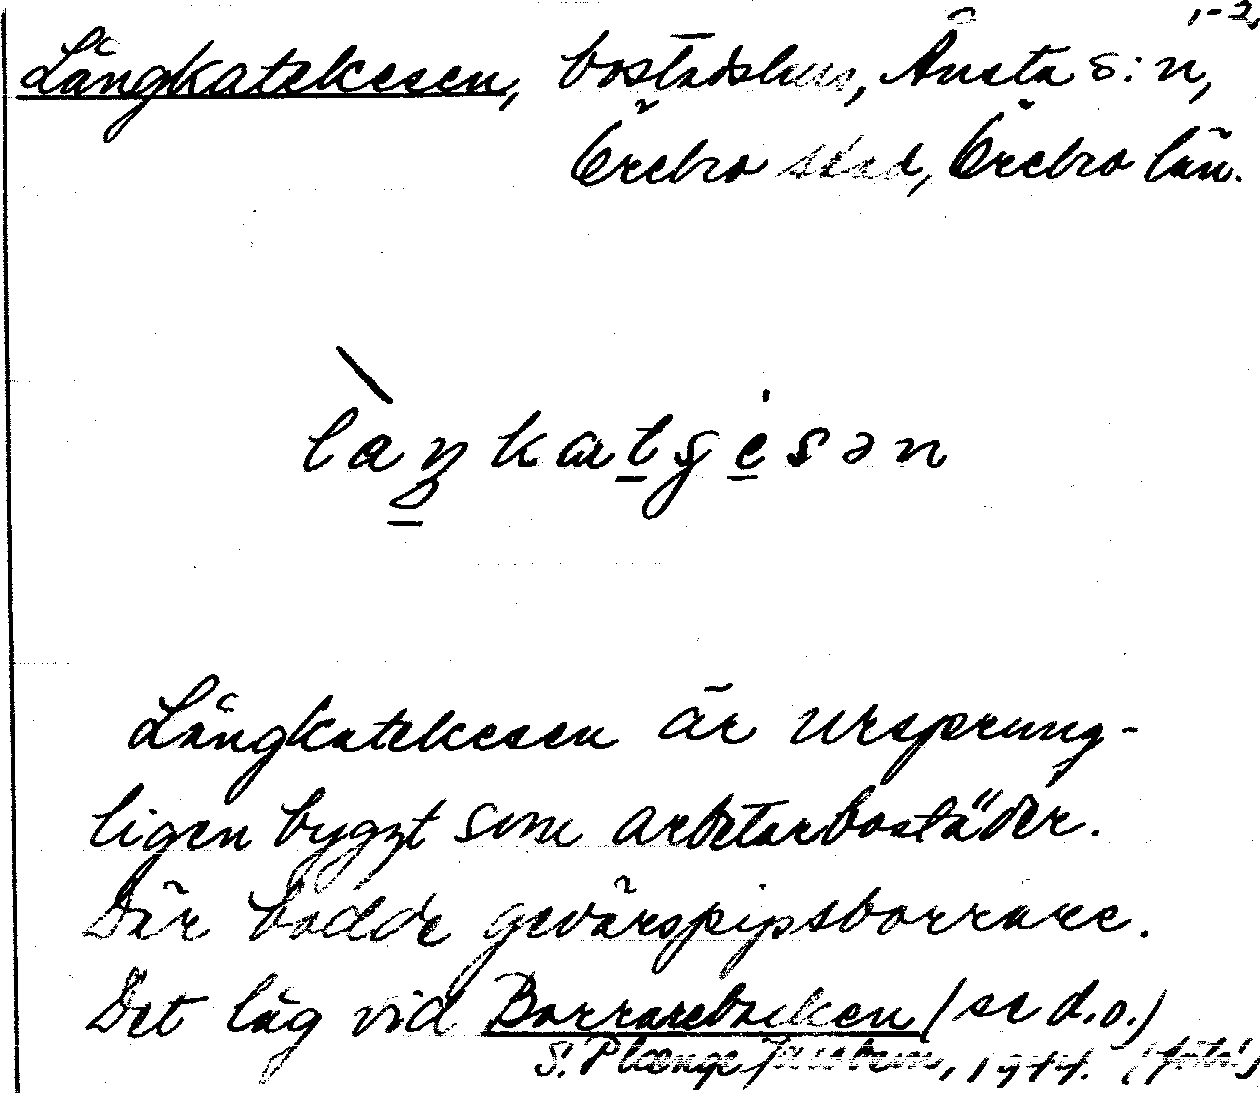 1-2,
Långkatekesen, bostadshus, Ånsta s:n,
Örebro stad, Örebro län.
Långkatekesen är ursprung-
ligen byggt som arbetarbostäder.
Där bodde gevärspipsborrare.
Det låg vid Borrarebacken (se d.o.)
S. Plænge Jacobson, 1944. (foto!)